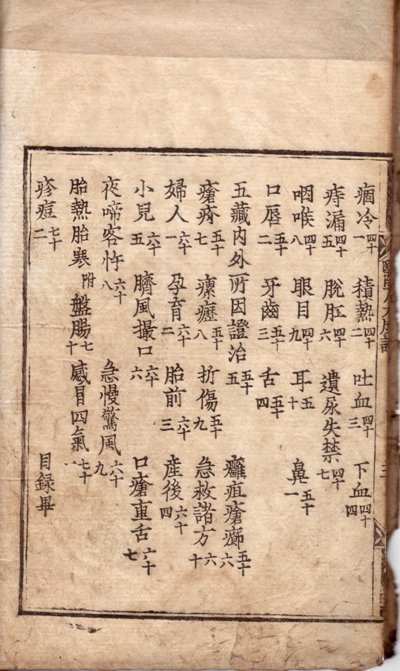 痼冷四十一 積熱四十二 吐血四十三 下血四十四
痔漏四十五 脫肛四十六 遺尿失禁四十七
咽喉四十八 眼目四十九 耳五十 鼻五十一
口唇五十二 牙齒五十三 舌五十四
五藏內外所因證治五十五 癰疽瘡癤五十六
瘡疥五十七 瘰癧五十八 折傷五十九 急救諸方六十
婦人六十一 孕育六十二 胎前六十三 産後六十四
小兒六十五 臍風撮口六十六 口瘡重舌六十七
夜啼客忤六十八 急慢驚風六十九
胎熱胎寒附 盤腸七十 感冒四氣七十一
疹痘七十二 目錄畢